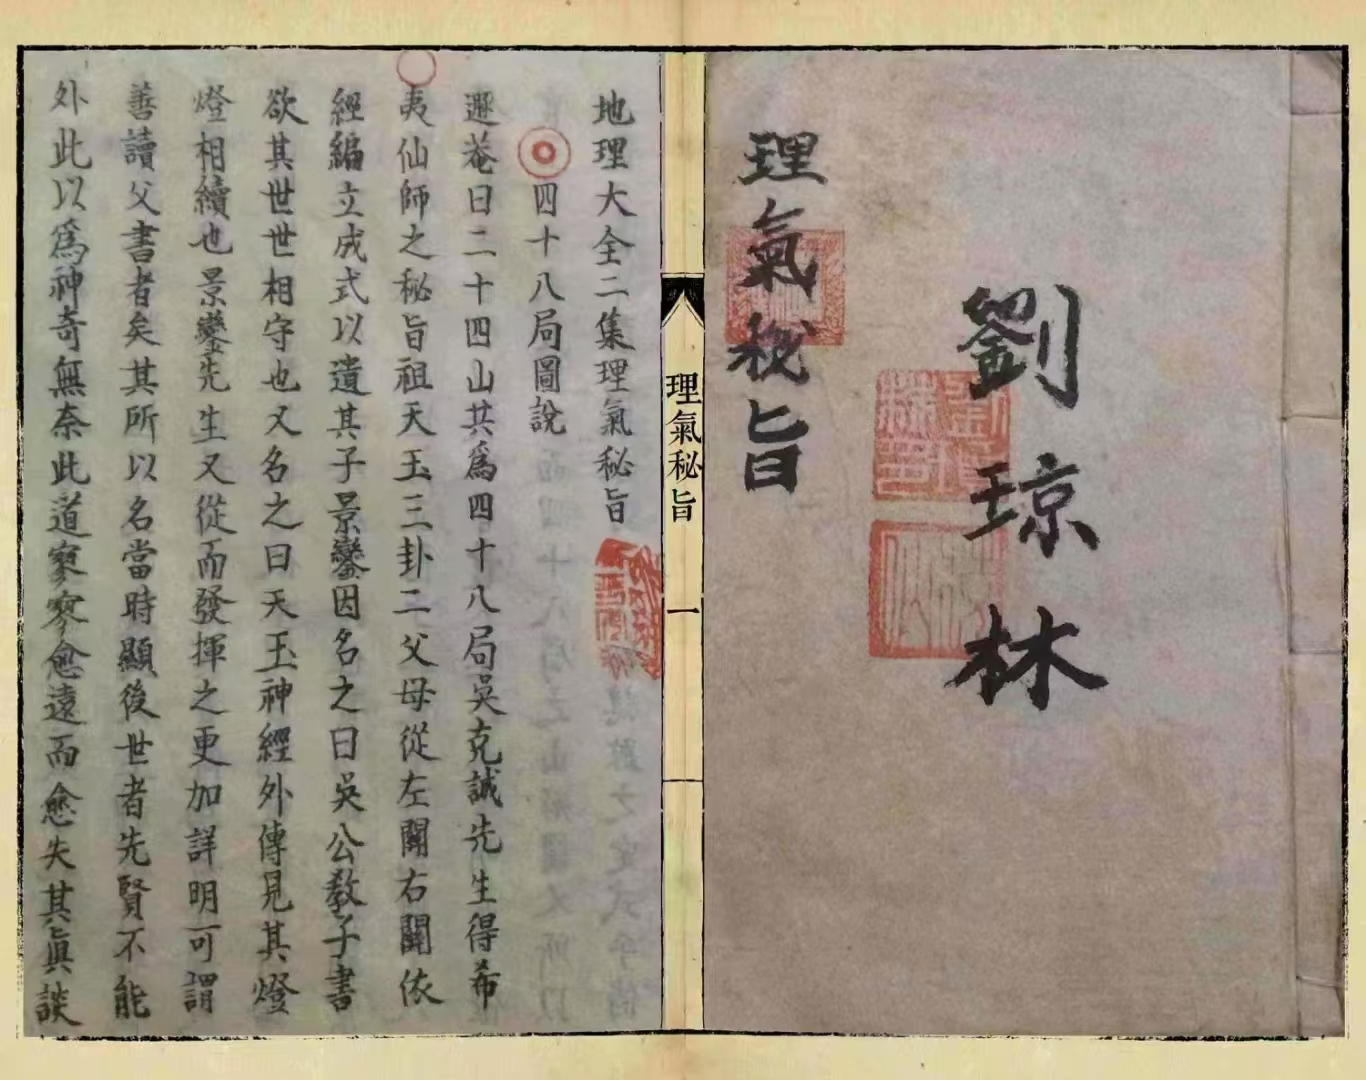 理氣秘旨
劉琼林
理氣秘旨
一
地理大全二集理氣秘旨
四十八局圖說
遯菴曰二十四山共為四十八局吳克誠先生得希
夷仙師之秘旨祖天玉三卦二父母從左關右關依
經編立成式以遺其子景鸞因名之曰吳公教子書
欲其世世相守也又名之曰天玉神經外傳見其燈
燈相續也景鸞先生又從而發揮之更加詳明可謂
善讀父書者矣其所以名當時顯後世者先賢不能
外此以為神奇無奈此道寥寥愈遠而愈失其眞談